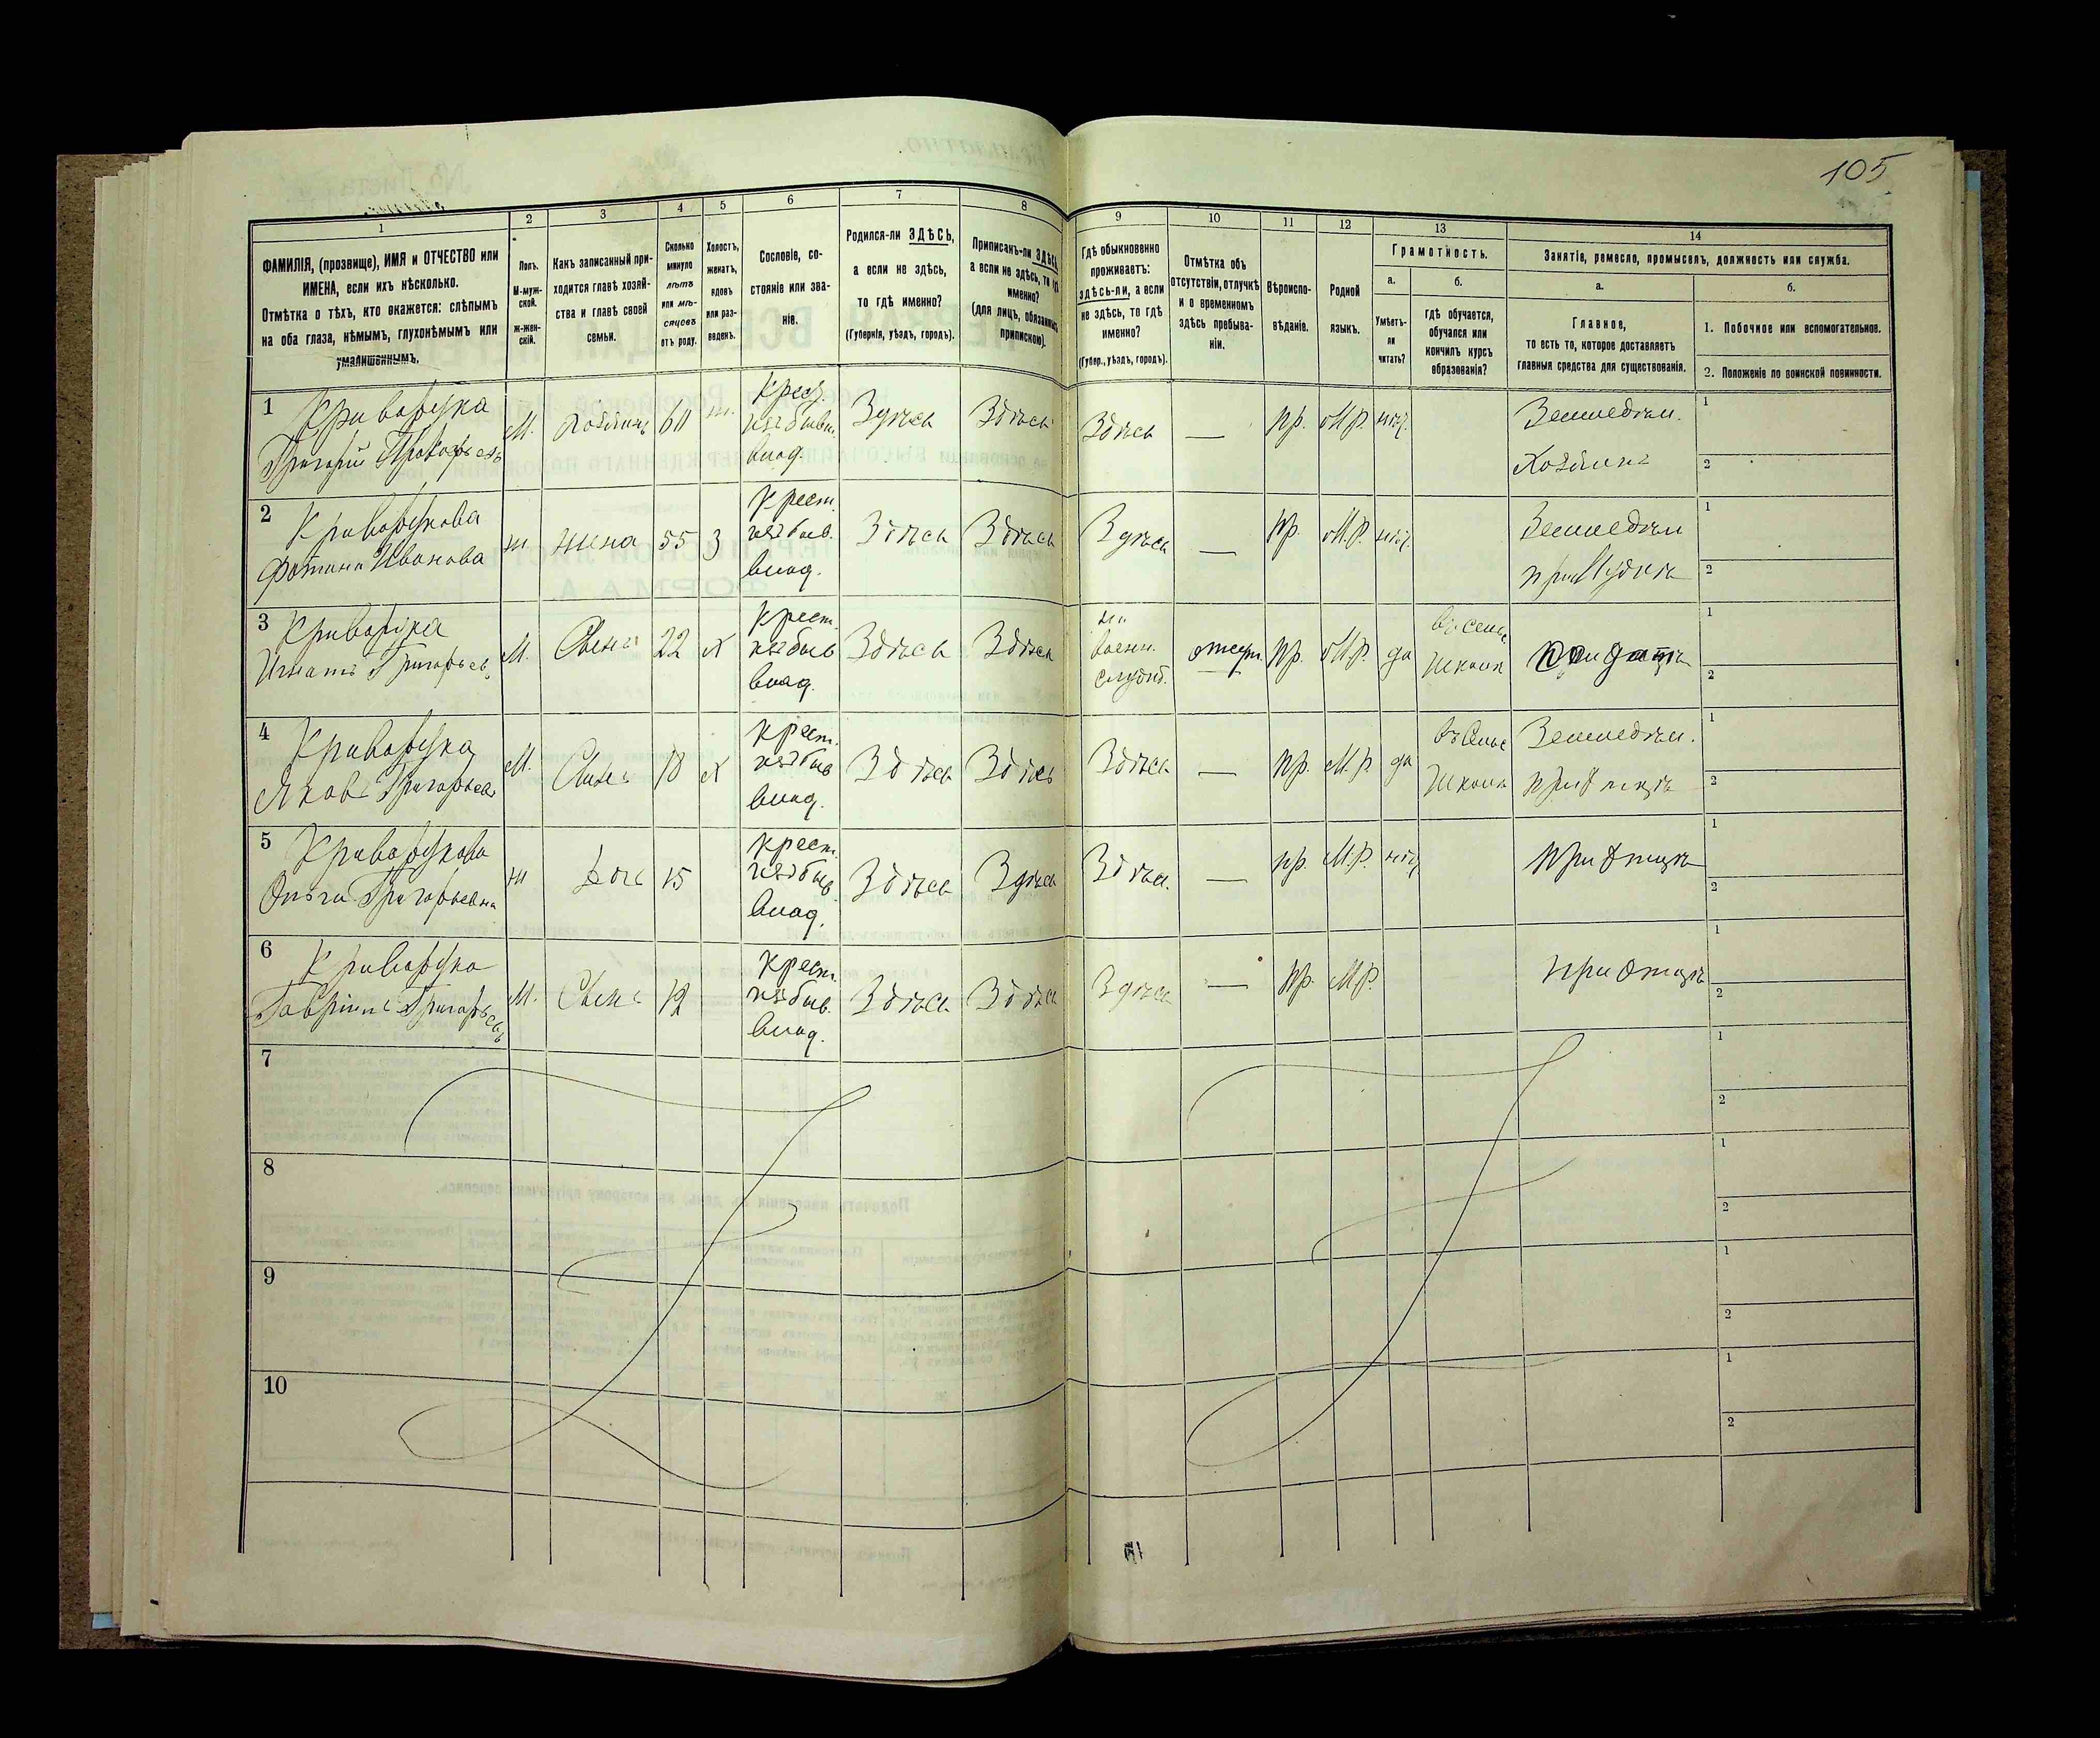 105
1
2
3
4
5
6
7
8
9
10
11
12
13
14
ФАМИЛІЯ, (прозвище), ИМЯ и ОТЧЕСТВО или
ИМЕНА, если ихъ нѣсколько.
Отмѣтка о тѣхъ, кто окажется: слѣпымъ
на оба глаза, нѣмымъ, глухонѣмымъ или
умалишеннымъ.
Полъ.
М-муж-
ской.
Ж-жен-
скій.
Какъ записанный при-
ходится главѣ хозяй-
ства и главѣ своей
семьи.
Сколько
минуло
лѣтъ
или мѣ-
сяцевъ
отъ роду.
Холостъ,
женатъ,
вдовъ
или раз-
веденъ.
Сословіе, со-
стояніе или зва-
ніе.
Родился-ли ЗДѢСЬ,
а если не здѣсь,
то гдѣ именно?
(Губернія, уѣздъ, городъ).
Приписанъ-ли ЗДѢСЬ
а если не здѣсь, то гдѣ
именно?
(для лицъ, обязанныхъ
припискою).
Гдѣ обыкновенно
проживаетъ:
здѣсь-ли, а если
не здѣсь, то гдѣ
именно?
(Губер., уѣздъ, городъ).
Отмѣтка объ
отсутствіи, отлучкѣ
и о временномъ
здѣсь пребыва-
ніи.
Вѣроиспо-
вѣданіе.
Родной
языкъ.
Грамотность.
а.
Умѣетъ-
ли
читать?
б.
гдѣ обучается,
обучался или
кончилъ курсъ
образованія?
Занятіе, ремесло, промыселъ, должность или служба.
а.
Главное,
то есть то, которое доставляетъ
главныя средства для существованія.
б.
1. Побочное или вспомогательное.
2. Положеніе по воинской повинности.
1
Криворука
Григорій Прокофьевъ
М.
Хозяинъ
60
ж.
Крест.
изъ бывш.
влад.
Здѣсь
Здѣсь
Здѣсь
—
пр.
М.Р.
нѣт.
Земледѣл.
Хозяинъ
1
2
2
Криворукова
Фотина Иванова
ж
жена
55
З
Крест.
изъ быв.
влад.
Здѣсь
Здѣсь
Здѣсь
—
пр.
М.Р.
нѣт.
Земледѣл
при мужѣ
1
2
3
Криворука
Игнатъ Григорьев.
М.
Сынъ
22
х
Крест.
изъ быв
влад.
Здѣсь
Здѣсь
на
воен.
служб.
отсут.
пр.
М.Р.
да
въ сельс.
школѣ
Солдатъ
1
2
4
Криворука
Яковъ Григорьевъ
М.
Сынъ
18
х
Крест.
изъ быв
влад.
Здѣсь
Здѣсь
Здѣсь
—
пр.
М.Р.
да
въ сельс
школѣ
Земледѣл.
при отцѣ
1
2
5
Криворукова
Ольга Григорьевна
ж
Дочь
15
Крест.
изъ быв
влад.
Здѣсь
Здѣсь
Здѣсь.
—
пр.
М.Р.
нѣт
при отцѣ
1
2
6
Криворука
Гаврилъ Григорьевъ
М.
Сынъ
12
Крест.
изъ быв.
влад.
Здѣсь
Здѣсь
Здѣсь
—
пр.
М.Р.
при отцѣ
1
2
7
1
2
8
1
2
9
1
2
10
1
2